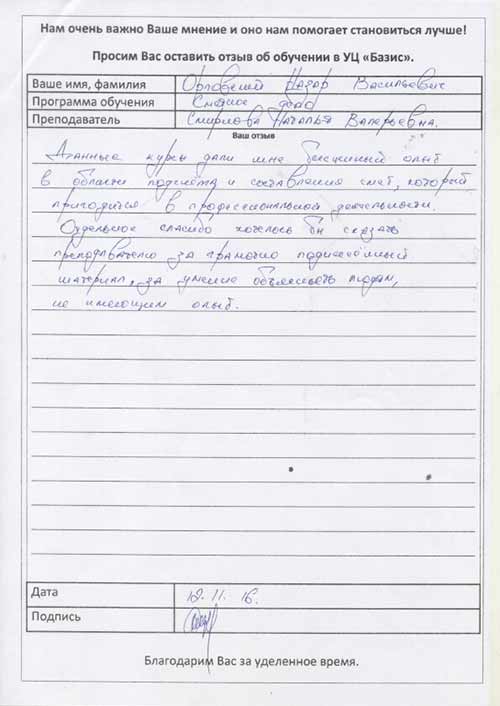 Нам очень важно Ваше мнение и оно нам помогает становиться лучше!
Просим Вас оставить отзыв об обучении в УЦ «Базис».
Ваше имя, фамилия Орловский Назар Васильевич
Программа обучения Сметное дело
Преподаватель Смирнова Наталья Валерьевна.
Ваш отзыв
Данные курсы дали мне бесценный опыт
в области подсчёта и составления смет, который
пригодится в профессиональной деятельности.
Отдельное спасибо хотелось бы сказать
преподавателю за грамотно поднесённый
материал, за умение объяснить людям,
не имеющим опыт.
Дата 12.11.16.
Подпись
Благодарим Вас за уделенное время.